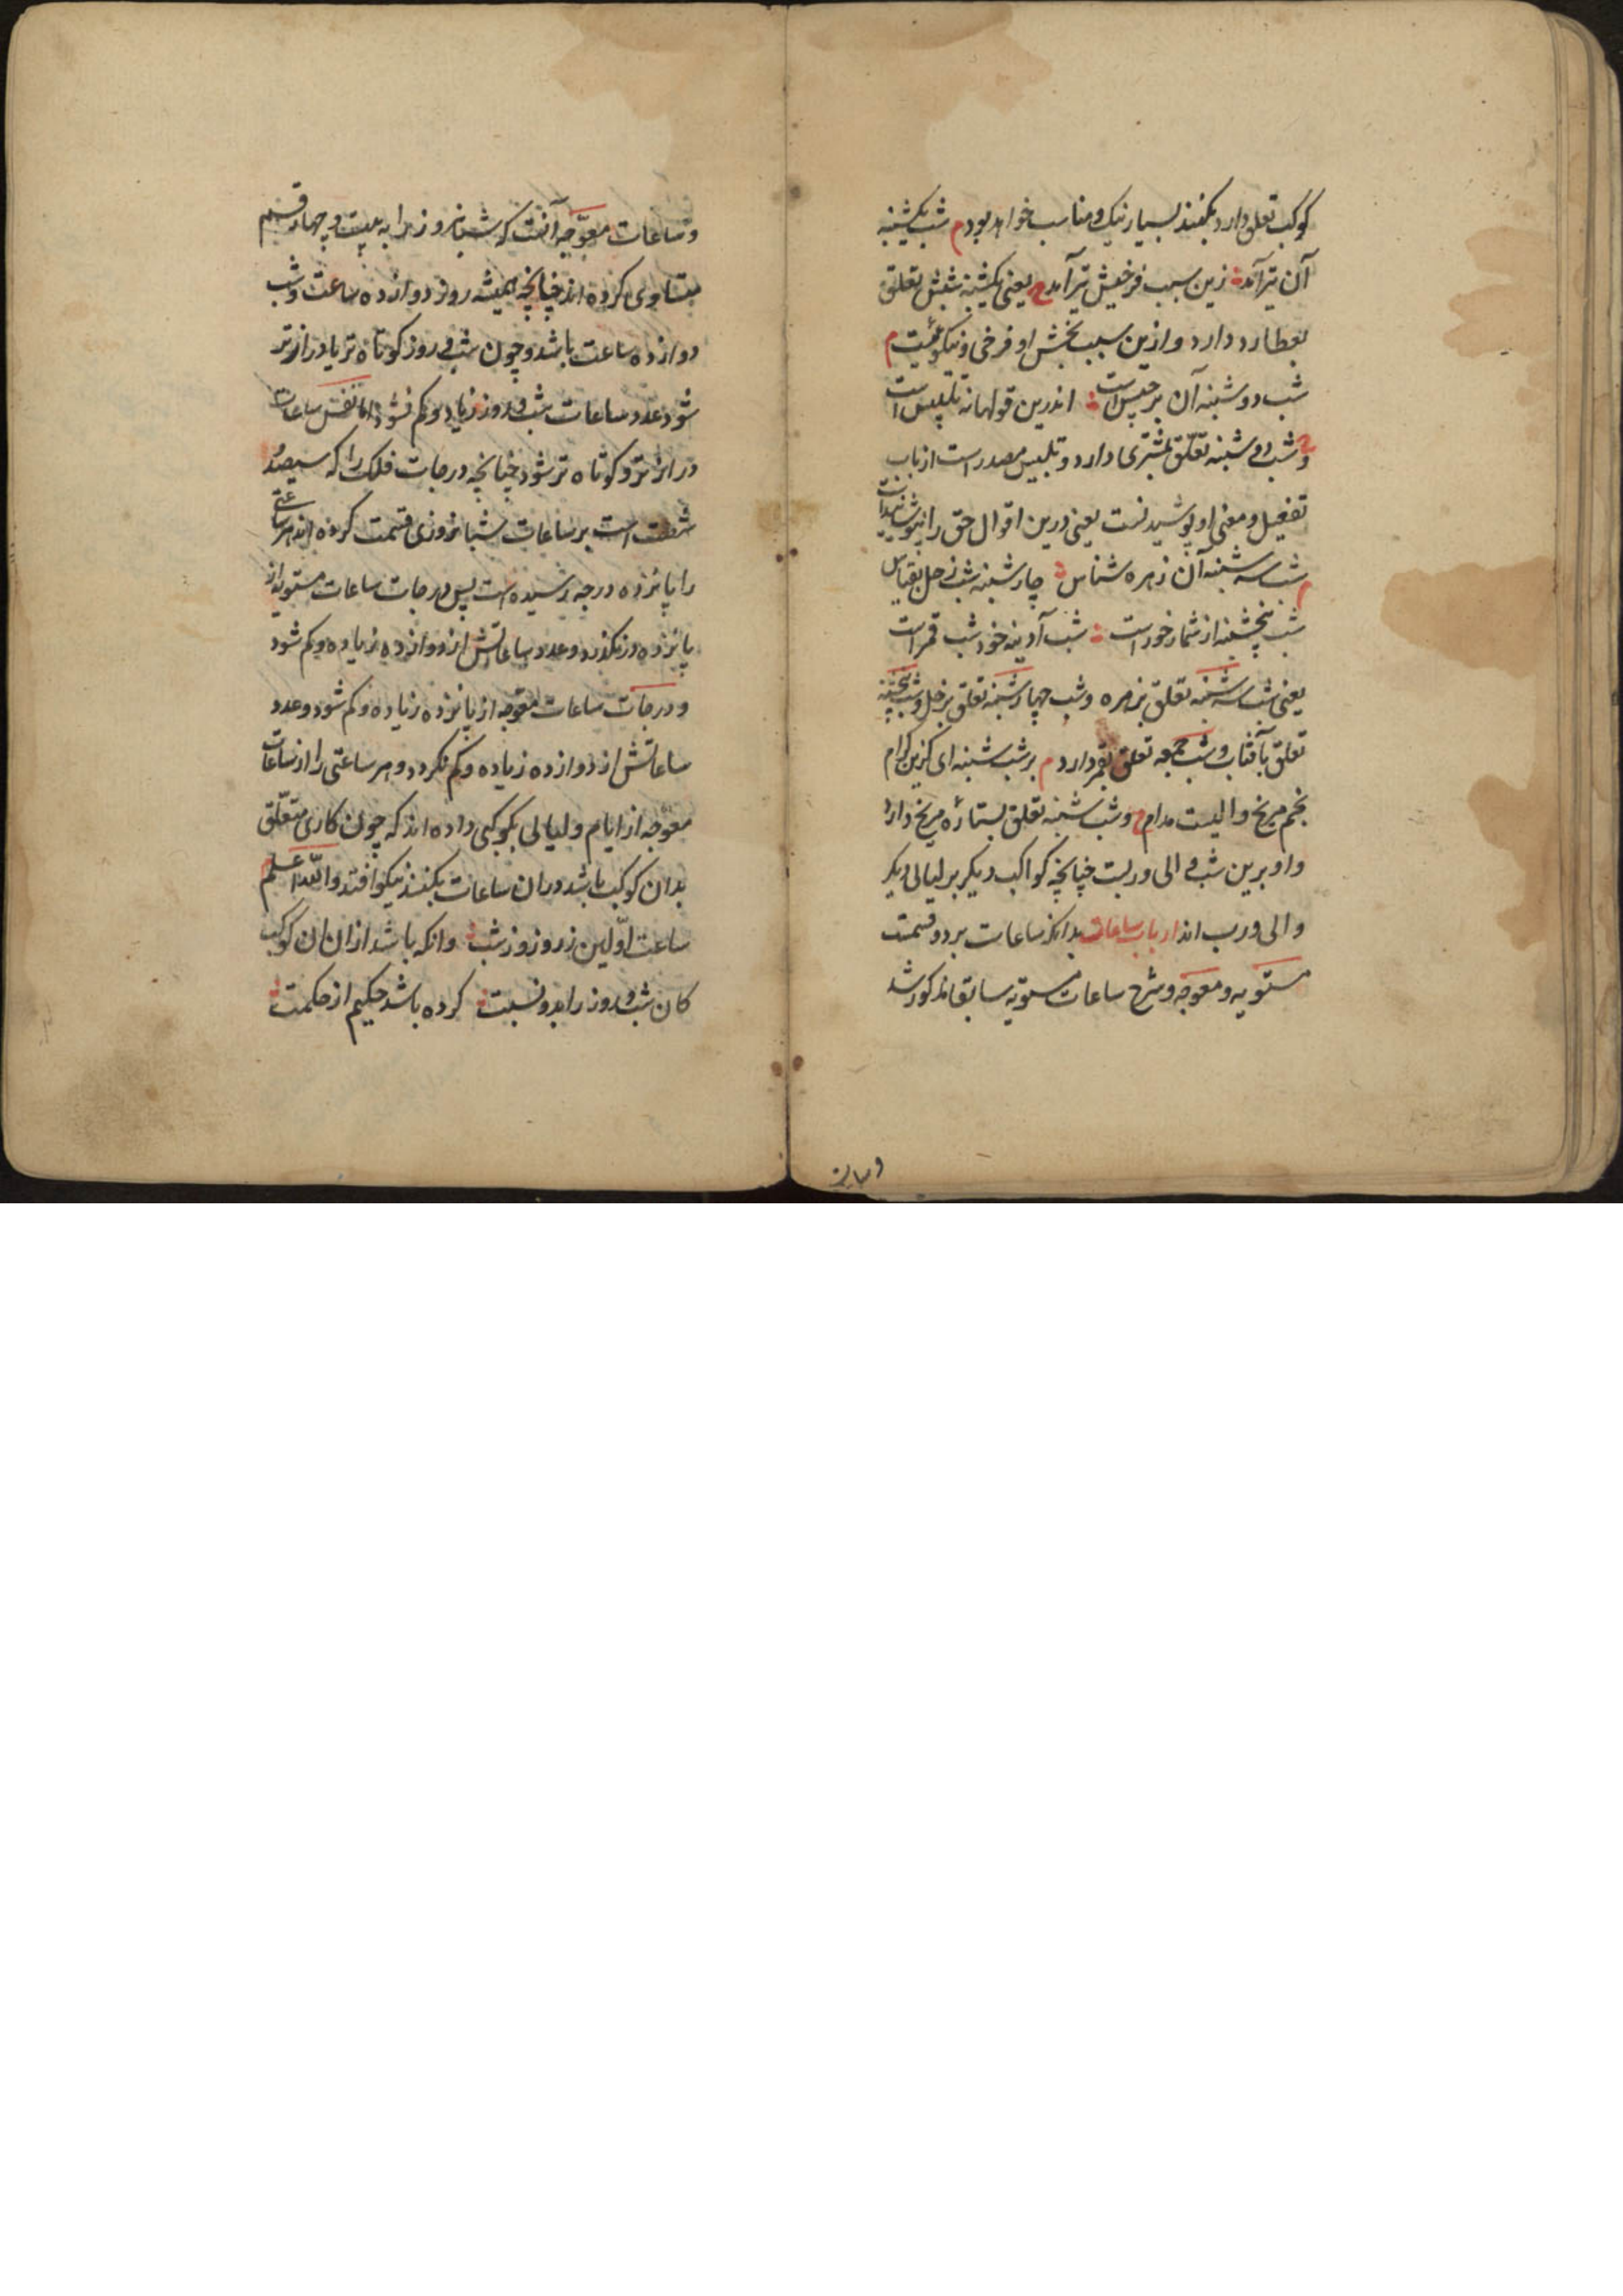 کوکب تعلق دارد بکنند بسیار نیک و مناسب خواهد بود م شب یکشنبه
آن تیر آمد زین سبب فرخیش تیر آمد ح یعنی یکشنبه شبش تعلق
بعطارد دارد و ازین سبب بخش او فرخی و نیکوئیست م
شب دوشنبه آن برجیس است اندرین قولها نه تلبیس است
ح و شب دوشنبه تعلق بمشتری دارد و تلبیس مصدر است از باب
تفعیل و معنی او پوشیدنست یعنی درین اقوال حق را
م شب سه شنبه آن زهره شناس چارشنبه شب زحل بقیاس
شب پنجشنبه از شمار خور است شب آدینه خود شب قمر است
یعنی شب سه شنبه تعلق بزهره و شب چهارشنبه تعلق بزحل و شب پنجشنبه
تعلق بآفتاب و شب جمعه تعلق بقمر دارد م بر شب شنبه ای گزین کرام
نجم مریخ والیست مدام ح و شب شنبه تعلق بستاره مریخ دارد
و او برین شب والی و ربست چنانچه کواکب دیگر بر لیالی دیگر
والی و رب اند ارباب ساعات بدانکه ساعات بر دو قسمت
مستویه و معوجه و شرح ساعات مستویه سابقا مذکور شد
و ساعات معوجه آنست که شبانروز را به بیست و چهار قسم
متساوی کرده اند چنانچه همیشه روز دوازده ساعت و شب
دوازده ساعت باشد و چون شب و روز کوتاه تر یا درازتر
شود عدد ساعات شب و روز زیاد و کم نشود اما نفس ساعات
درازتر و کوتاه تر شود چنانچه درجات فلک را که سیصد
شصت است بر ساعات شبانروزی قسمت کرده اند هر ساعتی
را پانزده درجه رسیده است پس درجات ساعات مستویه از
پانزده در نگذرد و عدد ساعاتش از دوازده زیاده و کم شود
و درجات ساعات معوجه از پانزده زیاده و کم شود و عدد
ساعاتش از دوازده زیاده و کم نگردد و هر ساعتی را از ساعات
معوجه از ایام و لیالی بکوکبی داده اند که چون کاری متعلق
بدان کوکب باشد دران ساعات بکنند نیکو افتد والله اعلم
ساعت اولین ز روز و ز شب وانکه باشد ازان ان کوکب
کان شب و روز را بدو نسبت کرده باشد حکیم از حکمت